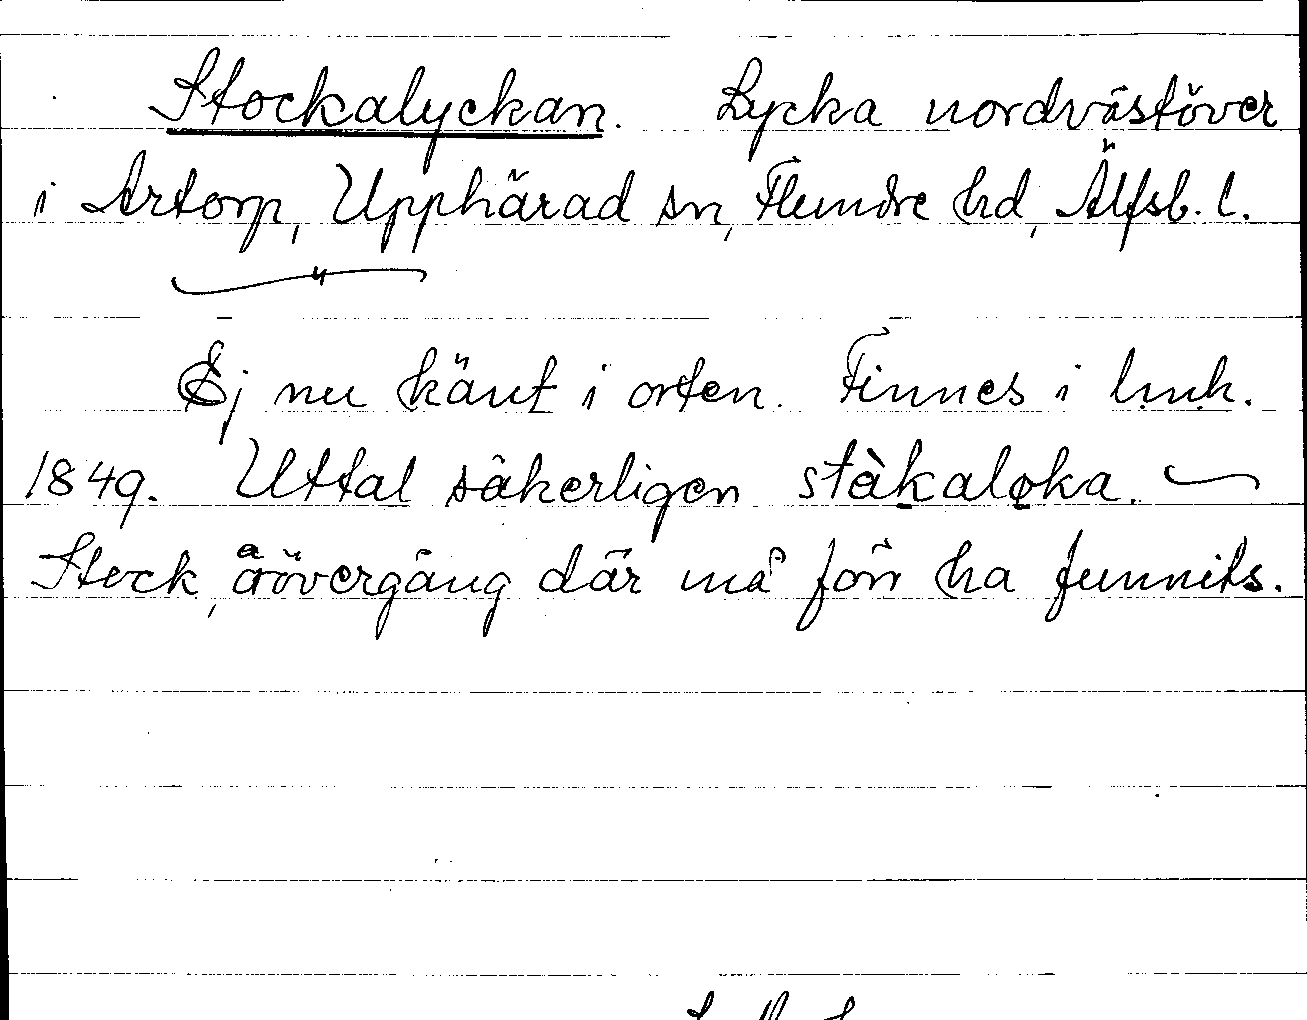 Stockalyckan. Lycka nordvästöver
i Artorp, Upphärad sn, Flundre hd, Älfsb. l.
"
Ej nu känt i orten. Finnes i lmh.
1849. Uttal säkerligen stàkaløka. —
Stock, åövergång där må förr ha funnits.